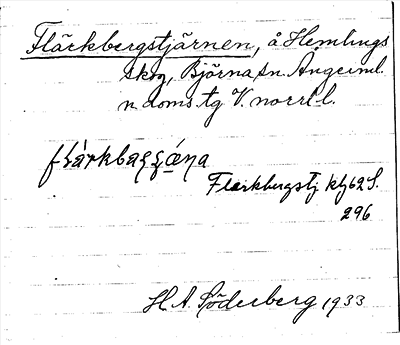 Flärkbergstjärnen, å Hemlings
skog, Björna sn. Ångerml.
n. doms. tg V. norrl. l.
Flärkbergstj kbl 62 S.
296
H. A. Söderberg 1933